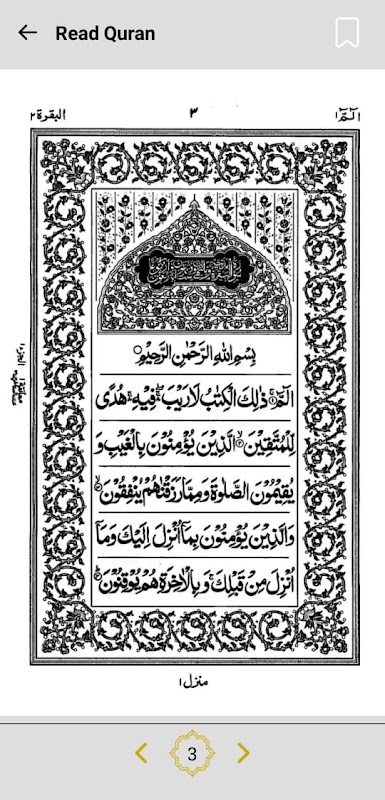 Read Quran
الٓمّٓ ١ ٣ البقرة ٢
بِسْمِ اللّٰهِ الرَّحْمٰنِ الرَّحِيْمِ
الٓمّٓ ۚ ذٰلِكَ الْكِتٰبُ لَا رَيْبَ ۛ فِيْهِ ۛ هُدًى
لِّلْمُتَّقِيْنَ ۙ الَّذِيْنَ يُؤْمِنُوْنَ بِالْغَيْبِ وَ
يُقِيْمُوْنَ الصَّلٰوةَ وَ مِمَّا رَزَقْنٰهُمْ يُنْفِقُوْنَ ۙ
وَ الَّذِيْنَ يُؤْمِنُوْنَ بِمَاۤ اُنْزِلَ اِلَيْكَ وَ مَاۤ
اُنْزِلَ مِنْ قَبْلِكَ ۚ وَ بِالْاٰخِرَةِ هُمْ يُوْقِنُوْنَ ؕ
منزل ١
3